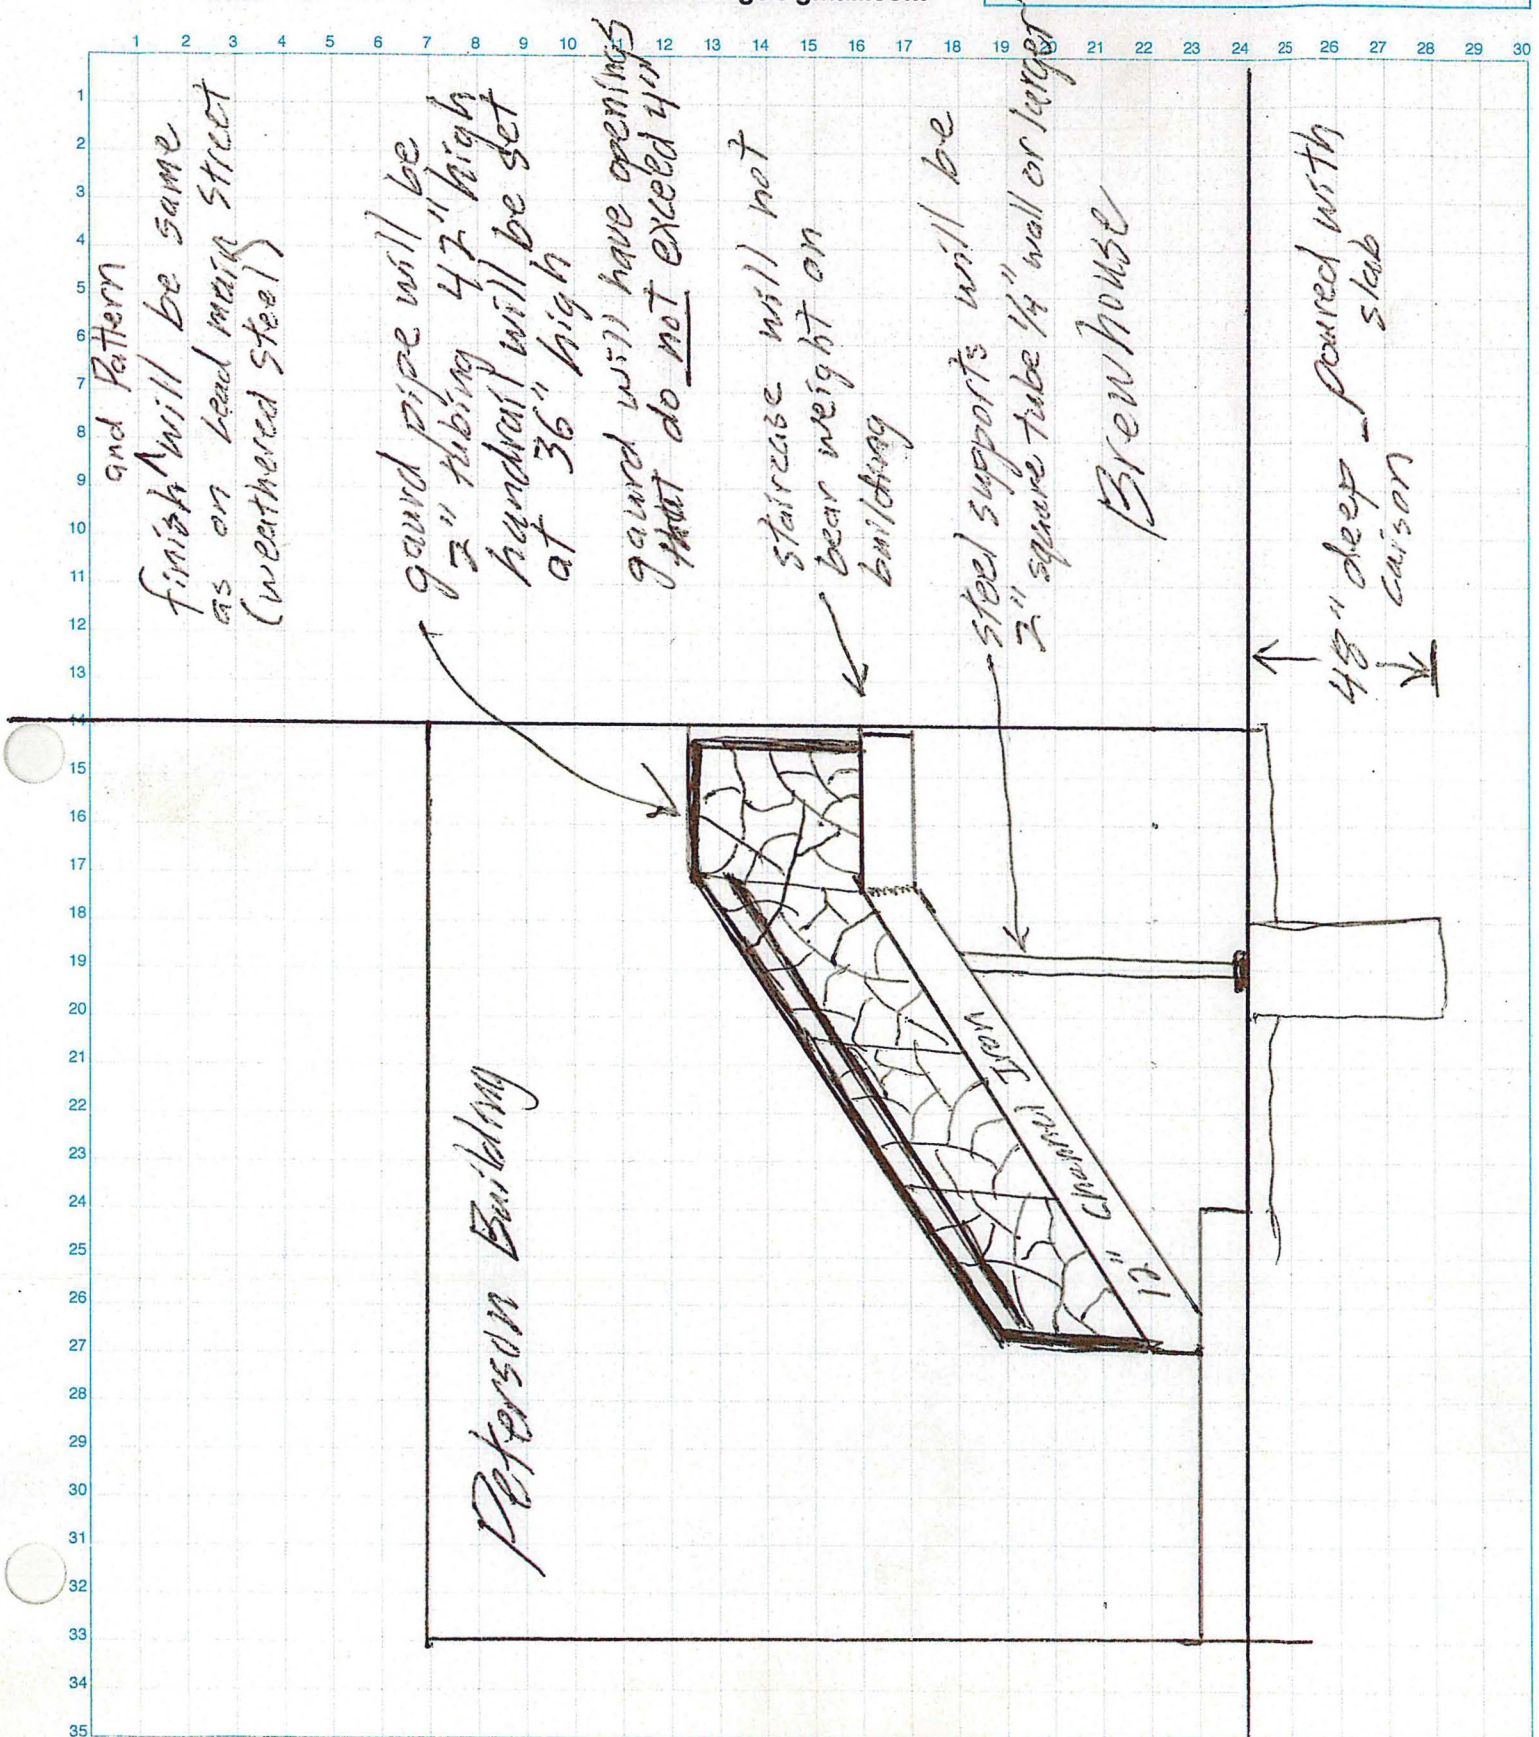 1 2 3 4 5 6 7 8 9 10 11 12 13 14 15 16 17 18 19 20 21 22 23 24 25 26 27 28 29 30
1
2
3
4
5
6
7
8
9
10
11
12
13
14
15
16
17
18
19
20
21
22
23
24
25
26
27
28
29
30
31
32
33
34
35
and Pattern
finish ^ will be same
as on Lead main street
(weathered steel)
gaurd pipe will be
2" tubing 42" high
handrail will be set
at 36" high
gaurd will have openings
that do not exceed 4"
staircase will not
bear weight on
building
steel supports will be
2" square tube 1/4" wall or larger
Brewhouse
Peterson Building
12" Channel Iron
48" deep - poured with
caison slab